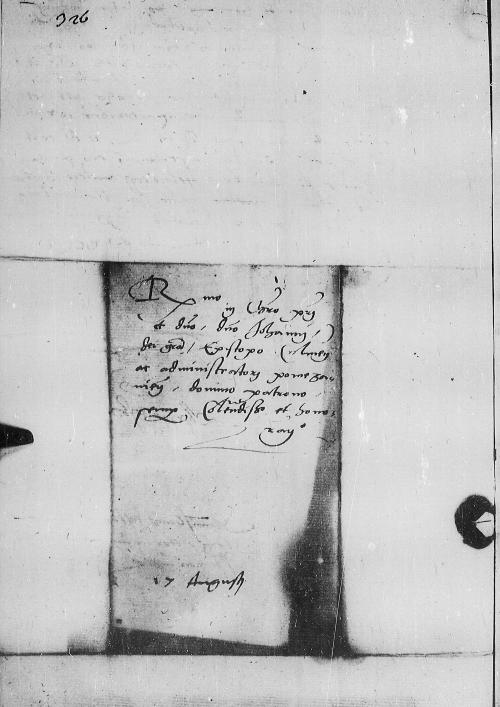 926
Rmo
in Chro pri
et dno, dno Johanni,
dei gra, Episcopo Culmen
ac administratori pomezan
nien, domino patrono,
semp Colendisso et hono
ran°
17 Augusti